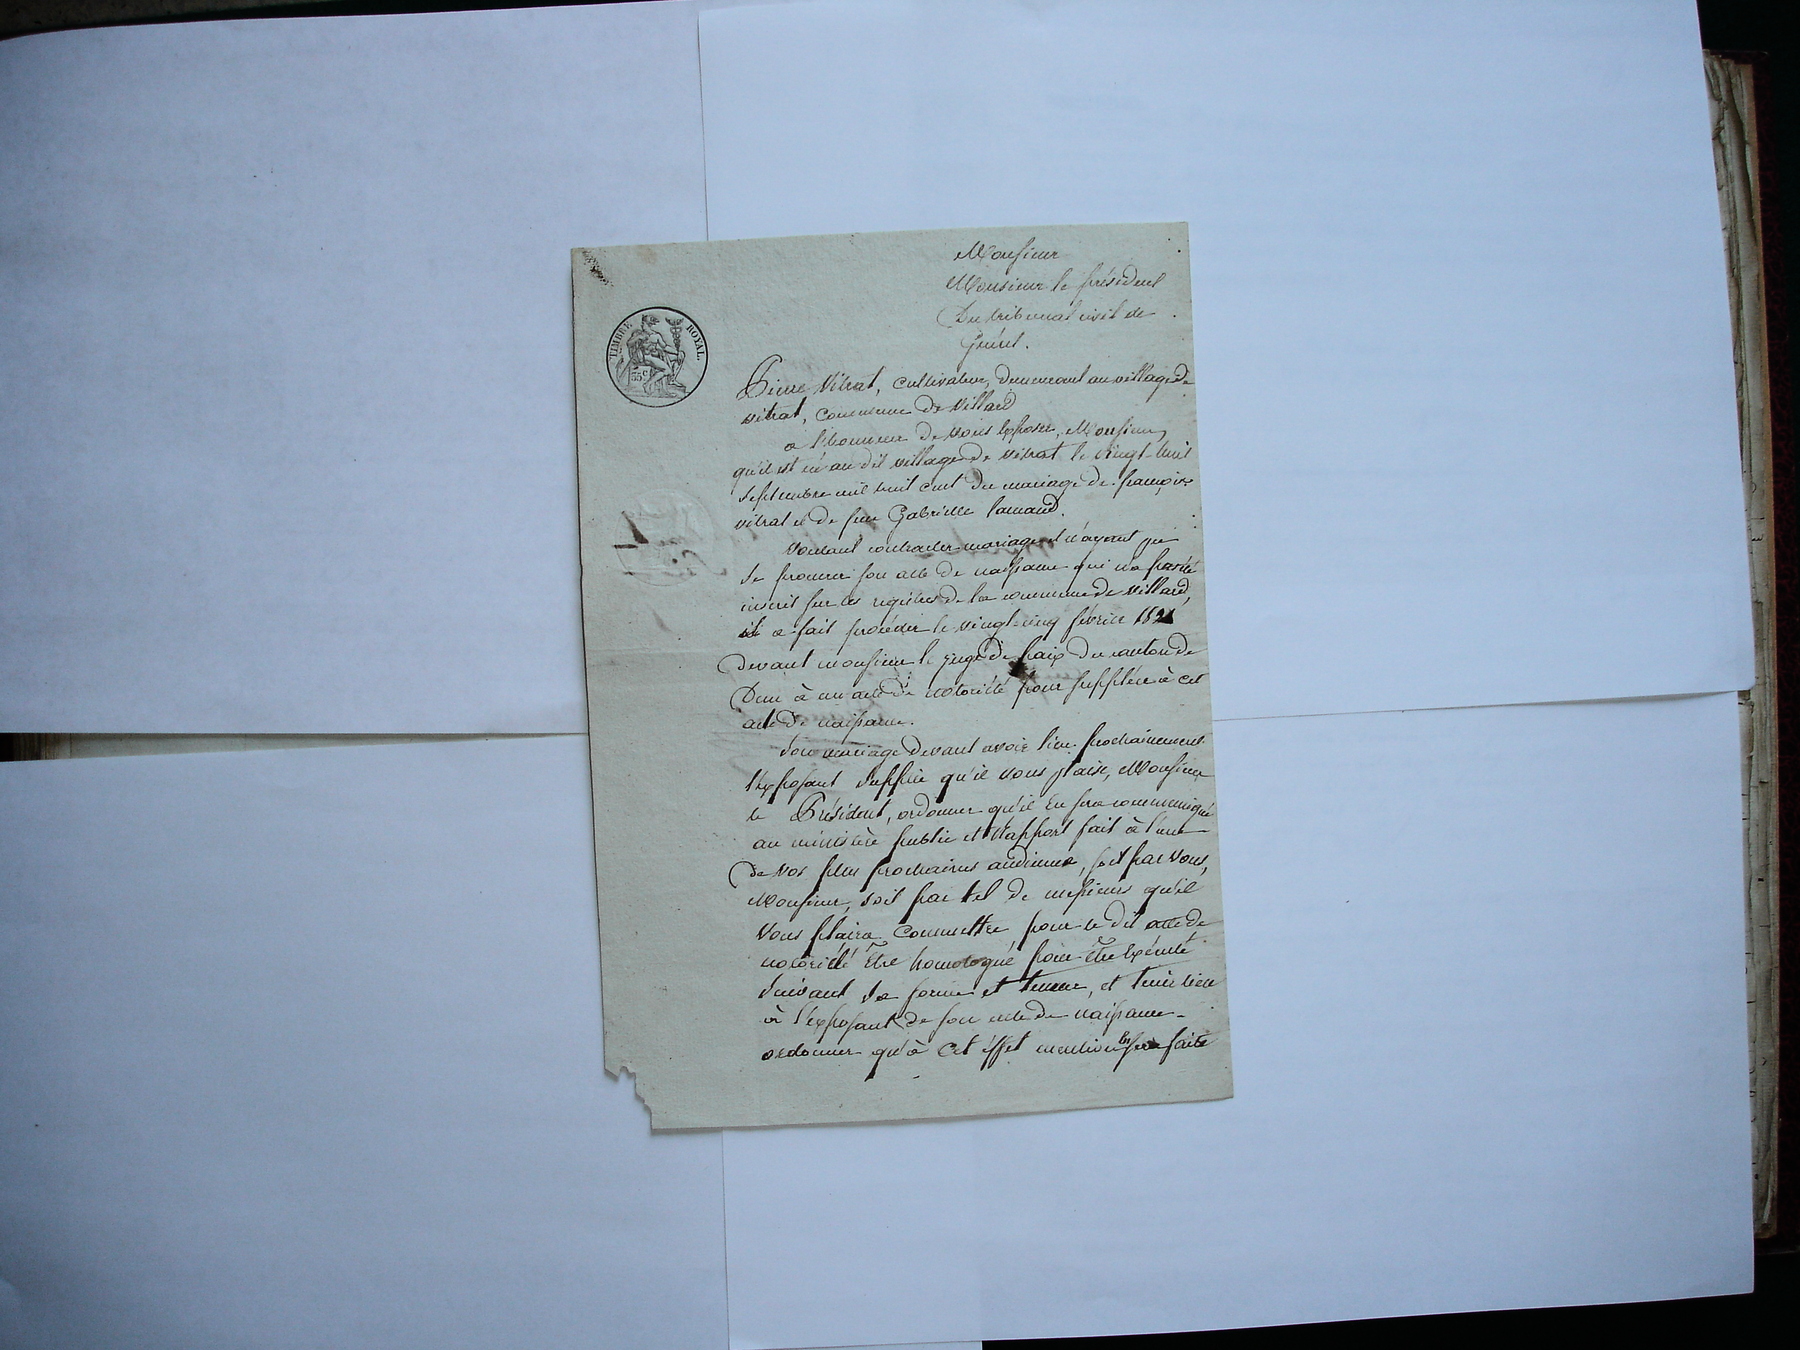 Monsieur
Monsieur le président
Du tribunal civil de
Guéret.
TIMBRE ROYAL
35c
Pierre Vitrat, cultivateur, demeurant au village de
vitrat, commune De Villard
a l'honneur De vous Exposer, Monsieur,
qu'il est né au dit village de vitrat le vingt-huit
septembre mil huit cent du mariage de françois
vitrat et de feue Gabrielle
Voulant contracter mariage et n'ayant pu
se procurer son acte De naissance qui n'a pas été
inscrit sur les registres de la commune de Villard,
il a fait procéder le vingt cinq février
Devant monsieur le juge de paix du canton de
Dun à un acte De notoriété pour suppléer à cet
acte De naissance.
Son mariage devant avoir lieu prochainement
l'exposant supplie qu'il vous plaise, Monsieur
le Président, ordonner qu'il En sera communiqué
au ministère public et Rapport fait à l'une
De vos plus prochaines audiences, soit par vous,
Monsieur, soit par tel de messieurs qu'il
vous plaira commettre, pour le dit acte de
notoriété être homologué pour être Exécuté
suivant sa forme et teneur, et tenir lieu
à l'exposant de son acte de naissance
ordonner qu'à cet Effet mention en sera faite